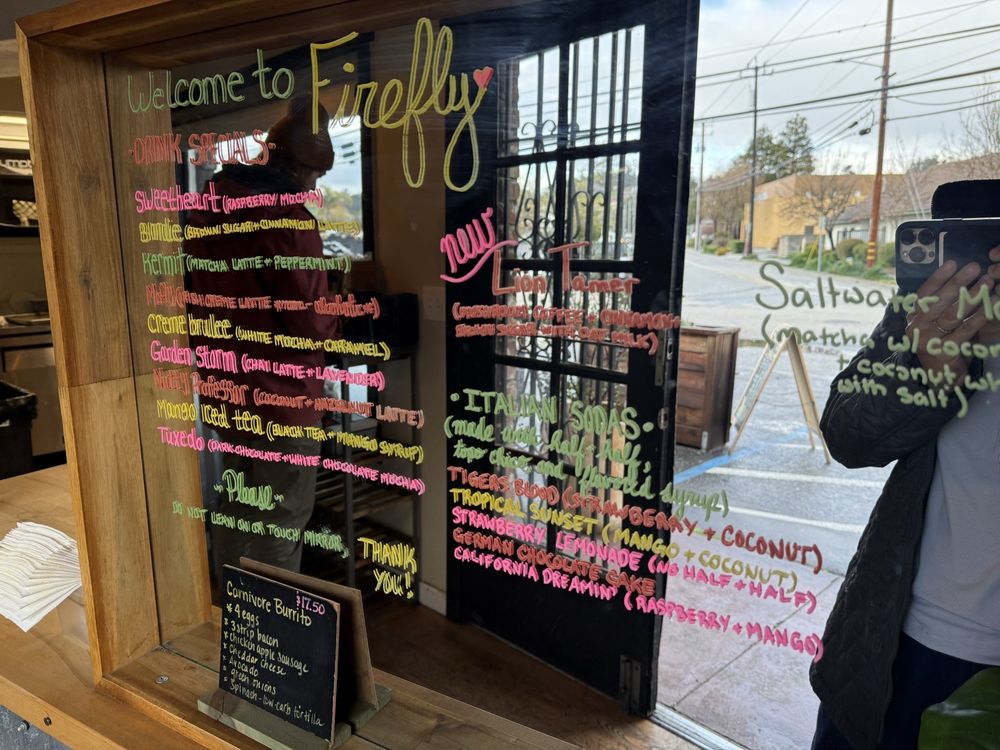 Welcome to Firefly
-DRINK SPECIALS-
sweetheart (RASPBERRY MOCHA)
Blondie (BROWN SUGAR + CINNAMON LATTE)
Kermit (MATCHA LATTE + PEPPERMINT)
creme brulee (WHITE MOCHA + CARAMEL)
Garden Storm (CHAI LATTE + LAVENDER)
Nutty Professor (COCONUT + HAZELNUT LATTE)
Mango iced tea (BLACK TEA + MANGO SYRUP)
Tuxedo (DARK CHOCOLATE + WHITE CHOCOLATE MOCHA)
~Please~
DO NOT LEAN ON OR TOUCH MIRROR,
THANK
YOU!
new
Lion Tamer
(MUSHROOM COFFEE + CINNAMON
BROWN SUGAR WITH OAT MILK)
•ITALIAN SODAS•
(made with half+half,
topo chico and flavored syrup)
TIGERS BLOOD (STRAWBERRY + COCONUT)
TROPICAL SUNSET (MANGO + COCONUT)
STRAWBERRY LEMONADE (NO HALF + HALF)
GERMAN CHOCOLATE CAKE
CALIFORNIA DREAMIN' (RASPBERRY + MANGO)
Saltwater
(matcha w/
coconut
with salt)
Carnivore Burrito
$17.50
* 4 eggs
* 3 strip bacon
* chicken apple sausage
* cheddar cheese
* Avocado
* green onions
* Spinach-low-carb tortilla